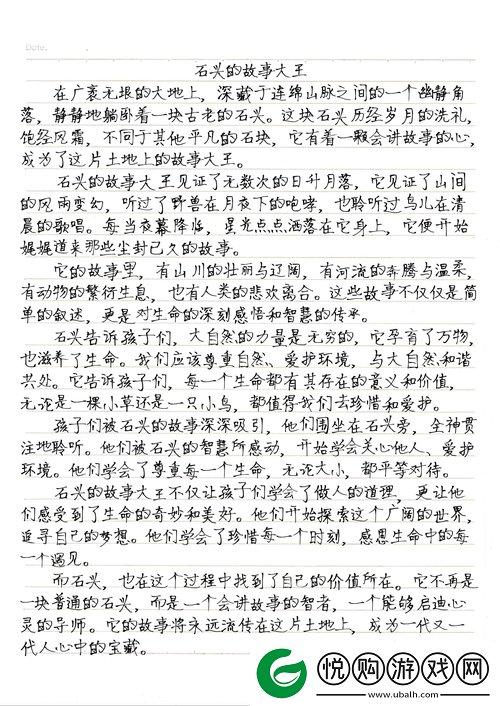 Date.
石兴的故事大王
在广袤无垠的大地上，深藏于连绵山脉之间的一个幽静角
落，静静地躺卧着一块古老的石兴。这块石头历经岁月的洗礼，
饱经风霜，不同于其他平凡的石块，它有着一颗会讲故事的心，
成为了这片土地上的故事大王。
石兴的故事大王见证了无数次的日升月落，它见证了山间
的风雨变幻，听过了野兽在月夜下的咆哮，也聆听过鸟儿在清
晨的歌唱。每当夜幕降临，星光点点洒落在它身上，它便开始
娓娓道来那些尘封已久的故事。
它的故事里，有山川的壮丽与辽阔，有河流的奔腾与温柔，
有动物的繁衍生息，也有人类的悲欢离合。这些故事不仅仅是简
单的叙述，更是对生命的深刻感悟和智慧的传承。
石兴告诉孩子们，大自然的力量是无穷的，它孕育了万物，
也滋养了生命。我们应该尊重自然、爱护环境，与大自然和谐
共处。它告诉孩子们，每一个生命都有其存在的意义和价值，
无论是一棵小草还是一只小鸟，都值得我们去珍惜和爱护。
孩子们被石兴的故事深深吸引，他们围坐在石兴旁，全神贯
注地聆听。他们被石兴的智慧所感动，开始学会关心他人、爱护
环境。他们学会了尊重每一个生命，无论大小，都平等对待。
石兴的故事大王不仅让孩子们学会了做人的道理，更让他
们感受到了生命的奇妙和美好。他们开始探索这个广阔的世界，
追寻自己的梦想。他们学会了珍惜每一个时刻，感恩生命中的每
一个遇见。
而石兴，也在这个过程中找到了自己的价值所在。它不再是
一块普通的石头，而是一个会讲故事的智者，一个能够启迪心
灵的导师。它的故事将永远流传在这片土地上，成为一代又一
代人心中的宝藏。
悦购游戏网
www.ubalh.com